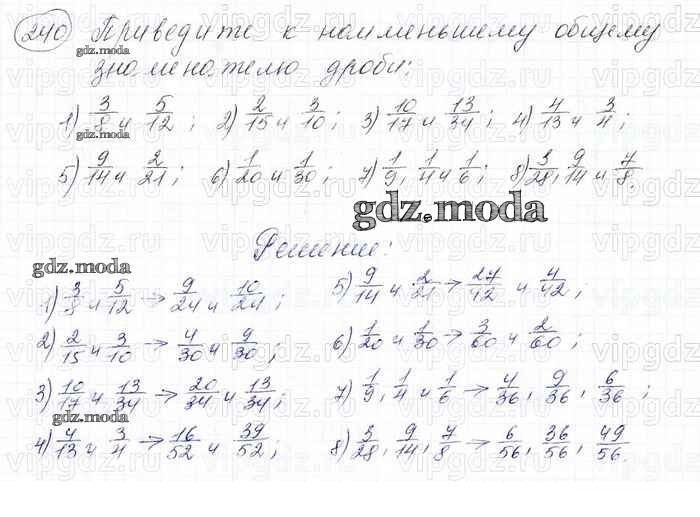 240 Приведите к наименьшему общему
gdz.moda
знаменателю дроби:
1) 3/8 и 5/12; 2) 2/15 и 3/10; 3) 10/17 и 13/34; 4) 4/13 и 3/4;
gdz.moda
5) 9/14 и 2/21; 6) 1/20 и 1/30; 7) 1/9, 1/4 и 1/6; 8) 3/28, 9/14 и 7/8.
gdz.moda
Решение:
gdz.moda
1) 3/8 и 5/12 → 9/24 и 10/24;
2) 2/15 и 3/10 → 4/30 и 9/30;
3) 10/17 и 13/34 → 20/34 и 13/34;
gdz.moda
4) 4/13 и 3/4 → 16/52 и 39/52;
5) 9/14 и 2/21 → 27/42 и 4/42;
6) 1/20 и 1/30 → 3/60 и 2/60;
7) 1/9, 1/4 и 1/6 → 4/36, 9/36, 6/36;
8) 3/28, 9/14, 7/8 → 6/56, 36/56, 49/56.
vipgdz.ru